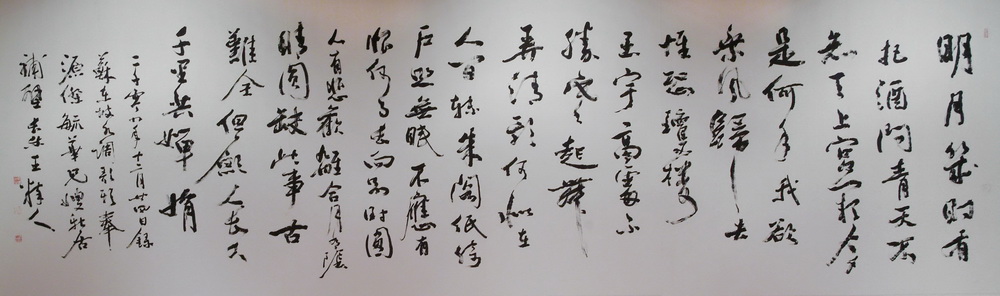 明月幾时有
把酒問青天不
知天上宮闕今夕
是何年我欲
乘風歸去
惟恐瓊樓
玉宇高處不
勝寒起舞
弄清影何似在
人間轉朱閣低綺
户照無眠不應有
恨何事長向别时圓
人有悲歡離合月有陰
晴圓缺此事古
難全但願人長久
千里共嬋娟
二千零八年十二月廿四日錄
蘇東坡水調歌頭奉
毓華兄新居
補壁 王